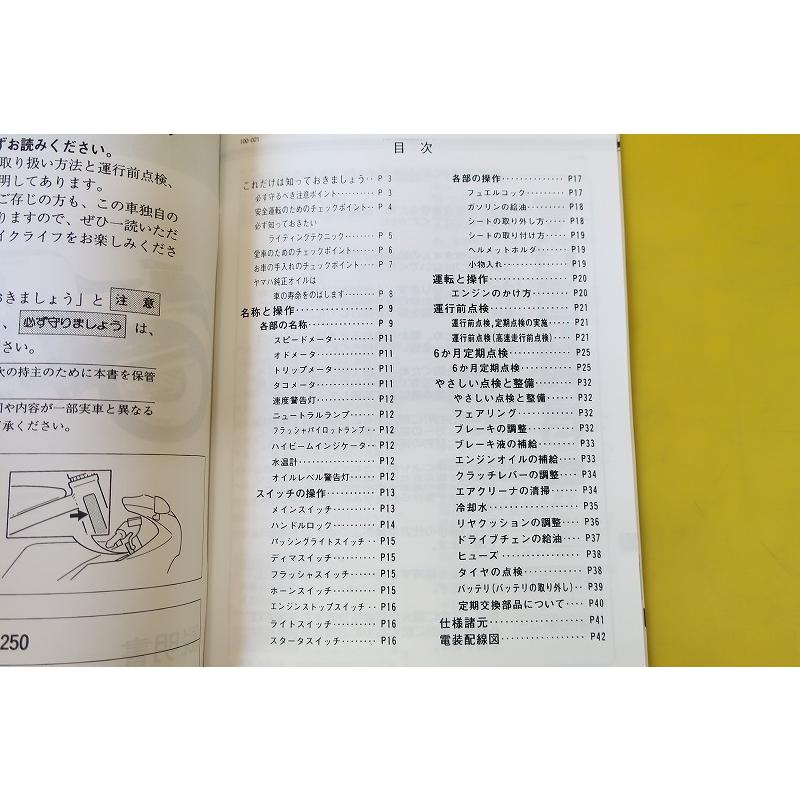 ずお読みください。
取り扱い方法と運行前点検、
明してあります。
ご存じの方も、この車独自の
りますので、ぜひ一読いただ
イクライフをお楽しみくださ
おきましょう」と 注意
、必ず守りましょう は、
さい。
次の持主のために本書を保管
図や内容が一部実車と異なる
了承ください。
250
100-021
目 次
これだけは知っておきましょう‥ P 3
必ず守るべき注意ポイント‥‥‥ P 3
安全運転のためのチェックポイント‥ P 4
必ず知っておきたい
ライディングテクニック‥‥ P 5
愛車のためのチェックポイント‥‥ P 6
お車の手入れのチェックポイント‥‥ P 7
ヤマハ純正オイルは
車の寿命をのばします‥‥‥ P 8
名称と操作‥‥‥‥‥‥‥‥ P 9
各部の名称‥‥‥‥‥‥‥ P 9
スピードメータ‥‥‥‥‥ P11
オドメータ‥‥‥‥‥‥‥ P11
トリップメータ‥‥‥‥‥ P11
タコメータ‥‥‥‥‥‥‥ P11
速度警告灯‥‥‥‥‥‥‥ P12
ニュートラルランプ‥‥‥ P12
フラッシャパイロットランプ‥‥ P12
ハイビームインジケータ‥‥ P12
水温計‥‥‥‥‥‥‥‥‥ P12
オイルレベル警告灯‥‥‥ P12
スイッチの操作‥‥‥‥‥‥ P13
メインスイッチ‥‥‥‥‥ P13
ハンドルロック‥‥‥‥‥ P14
パッシングライトスイッチ‥‥ P15
ディマスイッチ‥‥‥‥‥ P15
フラッシャスイッチ‥‥‥ P15
ホーンスイッチ‥‥‥‥‥ P15
エンジンストップスイッチ‥‥ P16
ライトスイッチ‥‥‥‥‥ P16
スタータスイッチ‥‥‥‥ P16
各部の操作‥‥‥‥‥‥‥P17
フュエルコック‥‥‥‥‥P17
ガソリンの給油‥‥‥‥‥P18
シートの取り外し方‥‥‥P18
シートの取り付け方‥‥‥P19
ヘルメットホルダ‥‥‥‥P19
小物入れ‥‥‥‥‥‥‥‥P19
運転と操作‥‥‥‥‥‥‥‥P20
エンジンのかけ方‥‥‥‥P20
運行前点検‥‥‥‥‥‥‥‥P21
運行前点検,定期点検の実施‥‥P21
運行前点検(高速走行前点検)‥‥P21
6か月定期点検‥‥‥‥‥‥P25
6か月定期点検‥‥‥‥‥P25
やさしい点検と整備‥‥‥‥P32
やさしい点検と整備‥‥‥P32
フェアリング‥‥‥‥‥‥P32
ブレーキの調整‥‥‥‥‥P32
ブレーキ液の補給‥‥‥‥P33
エンジンオイルの補給‥‥P33
クラッチレバーの調整‥‥P34
エアクリーナの清掃‥‥‥P34
冷却水‥‥‥‥‥‥‥‥‥P35
リヤクッションの調整‥‥P36
ドライブチェンの給油‥‥P37
ヒューズ‥‥‥‥‥‥‥‥P38
タイヤの点検‥‥‥‥‥‥P38
バッテリ(バッテリの取り外し)‥P39
定期交換部品について‥‥P40
仕様諸元‥‥‥‥‥‥‥‥‥P41
電装配線図‥‥‥‥‥‥‥‥P42